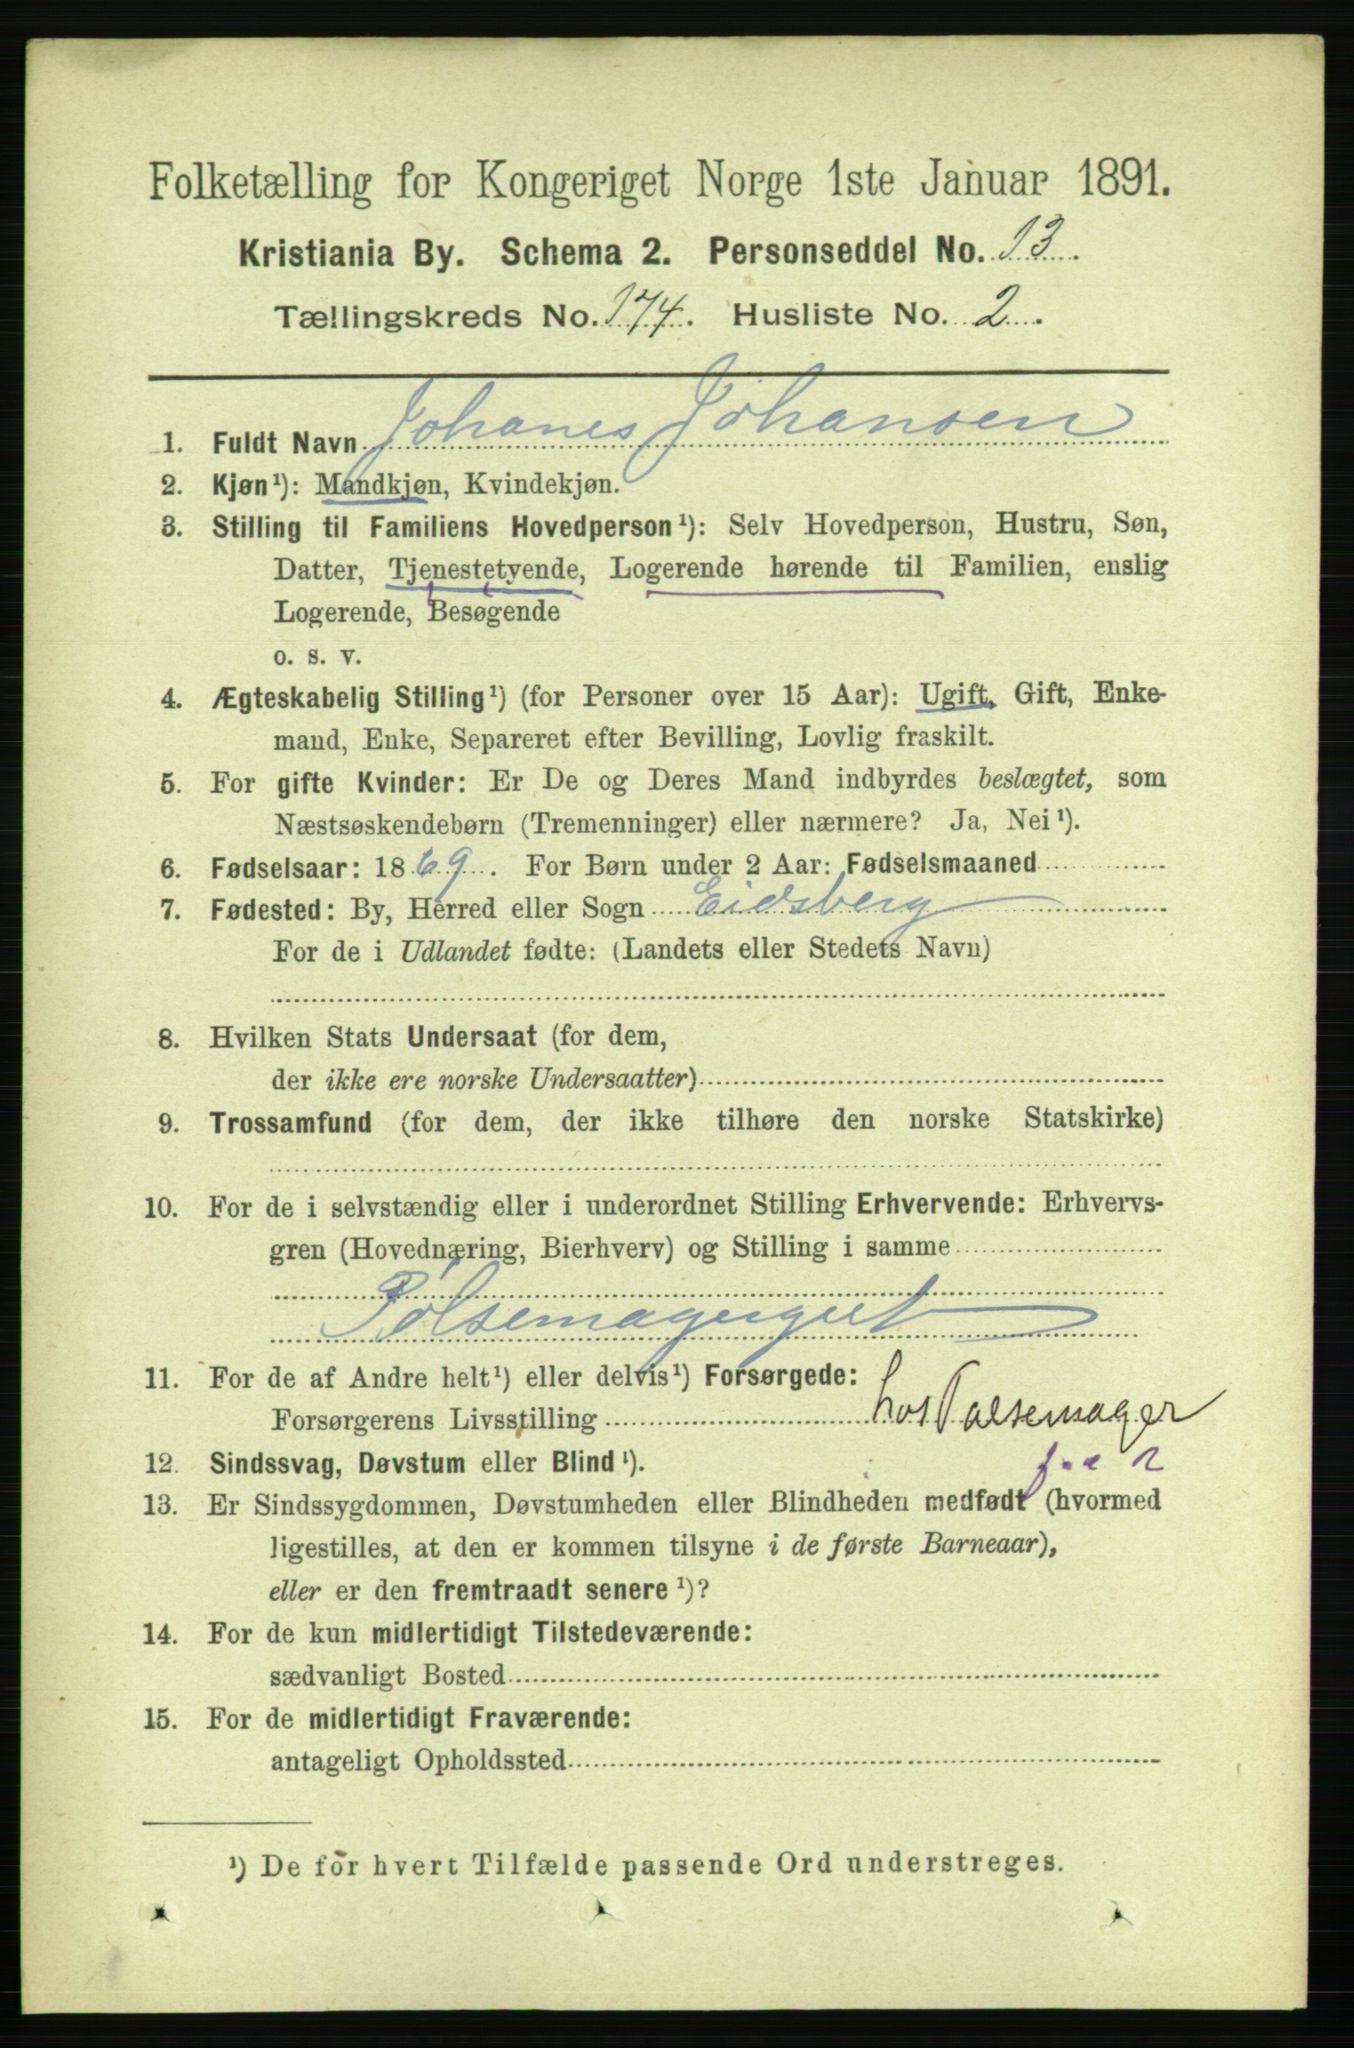 Folketælling for Kongeriget Norge 1ste Januar 1891.
Kristiania By. Schema 2. Personseddel No. 13.
Tællingskreds No. 174. Husliste No. 2.
1. Fuldt Navn Johanes Johansen
2. Kjøn¹): Mandkjøn, Kvindekjøn.
3. Stilling til Familiens Hovedperson¹): Selv Hovedperson, Hustru, Søn,
Datter, Tjenestetyende, Logerende hørende til Familien, enslig
Logerende, Besøgende
o. s. v.
4. Ægteskabelig Stilling¹) (for Personer over 15 Aar): Ugift, Gift, Enke-
mand, Enke, Separeret efter Bevilling, Lovlig fraskilt.
5. For gifte Kvinder: Er De og Deres Mand indbyrdes beslægtet, som
Næstsøskendebørn (Tremenninger) eller nærmere? Ja, Nei¹).
6. Fødselsaar: 1869. For Børn under 2 Aar: Fødselsmaaned
7. Fødested: By, Herred eller Sogn Eidsberg
For de i Udlandet fødte: (Landets eller Stedets Navn)
8. Hvilken Stats Undersaat (for dem,
der ikke ere norske Undersaatter)
9. Trossamfund (for dem, der ikke tilhøre den norske Statskirke)
10. For de i selvstændig eller i underordnet Stilling Erhvervende: Erhvervs-
gren (Hovednæring, Bierhverv) og Stilling i samme
Pølsemagergut
11. For de af Andre helt¹) eller delvis¹) Forsørgede:
Forsørgerens Livsstilling hos Pølsemager
12. Sindssvag, Døvstum eller Blind¹).
13. Er Sindssygdommen, Døvstumheden eller Blindheden medfødt (hvormed
ligestilles, at den er kommen tilsyne i de første Barneaar),
eller er den fremtraadt senere¹)?
14. For de kun midlertidigt Tilstedeværende:
sædvanligt Bosted
15. For de midlertidigt Fraværende:
antageligt Opholdssted
¹) De for hvert Tilfælde passende Ord understreges.